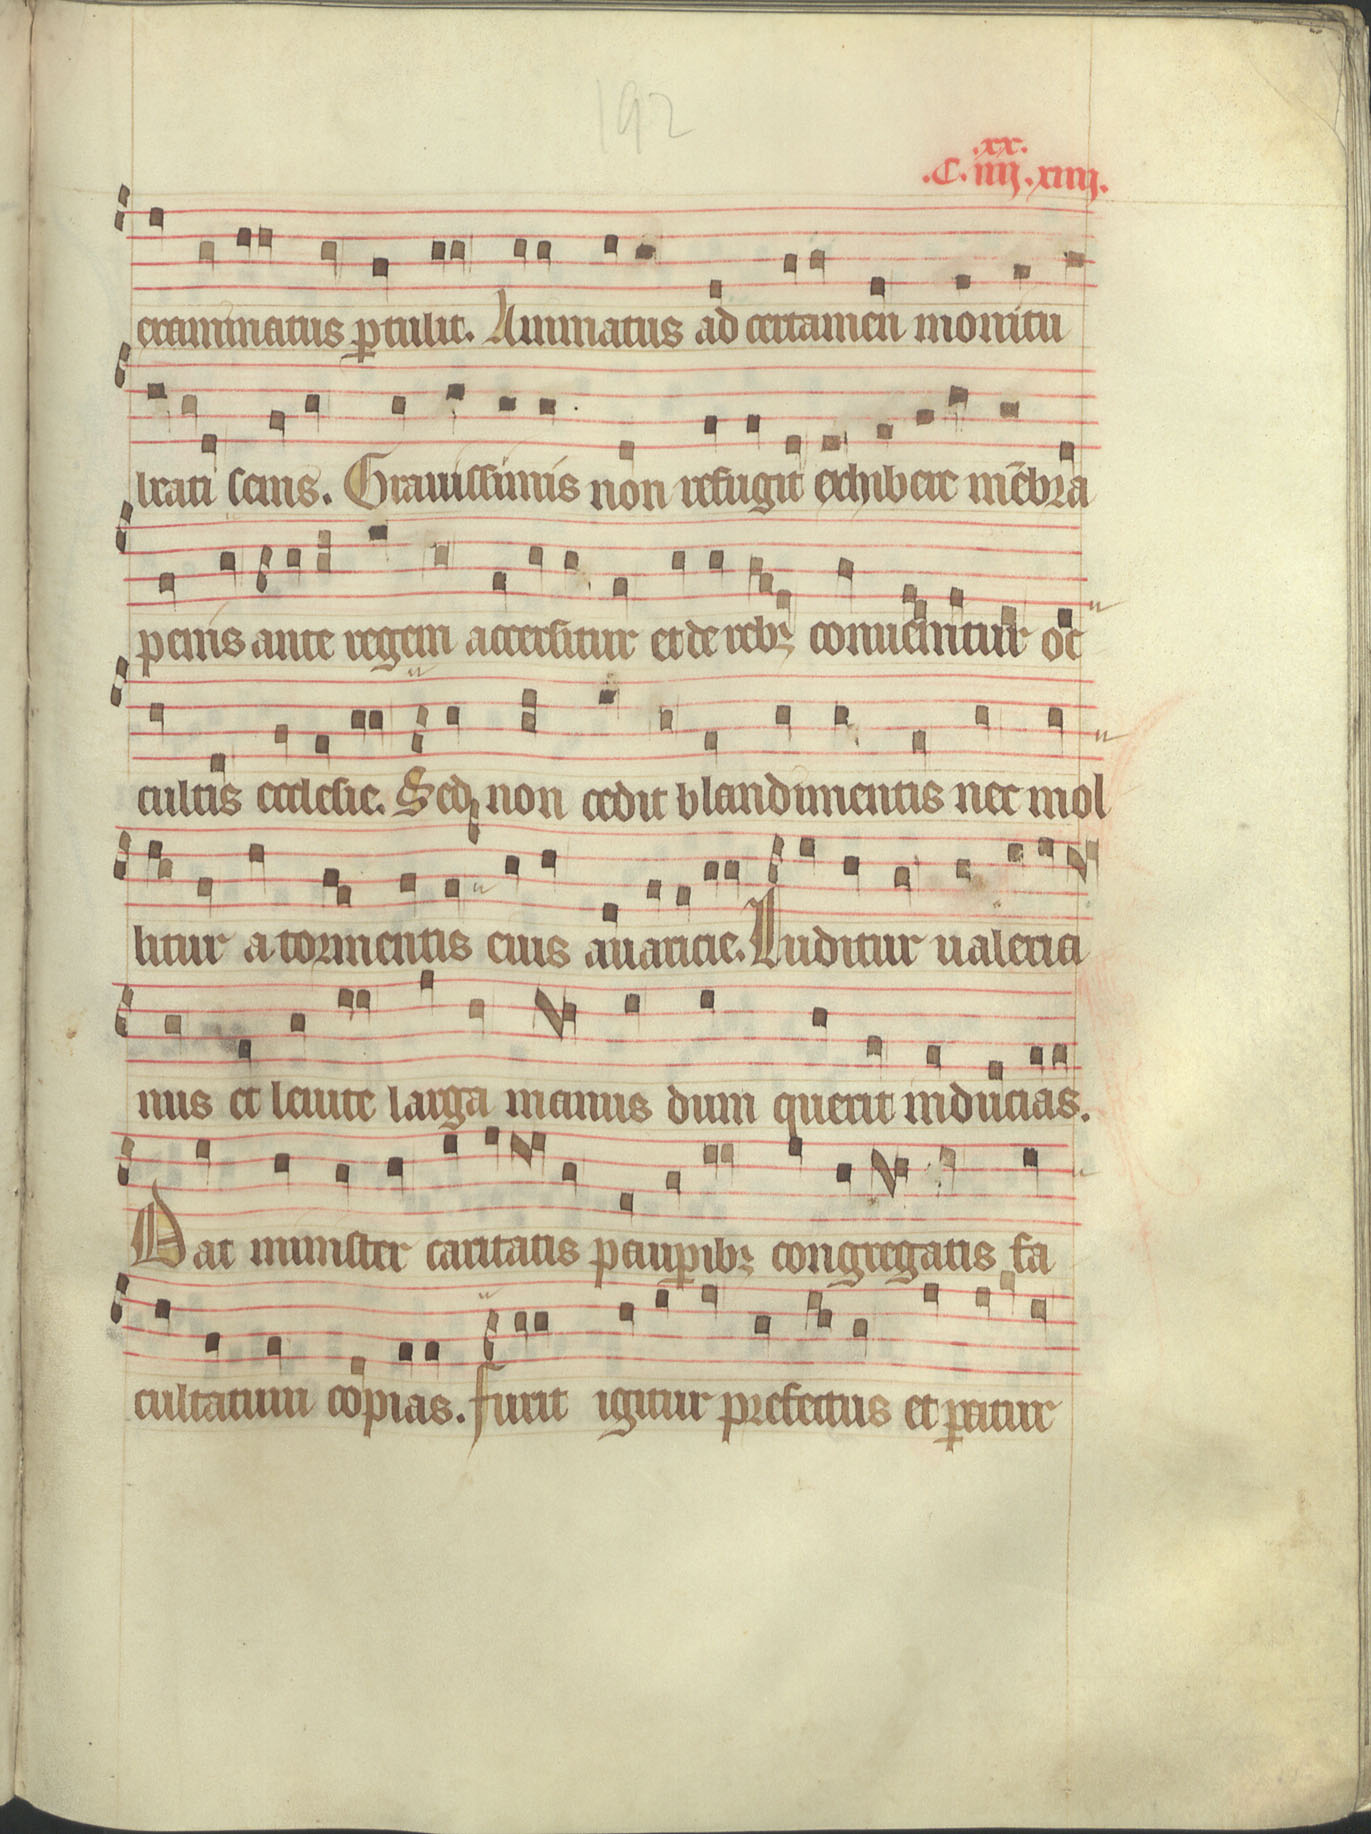 192
.xx.
.C.iiij.xiiij.
examinatus ꝑtulit. Animatus ad certamen monitu
beati senis. Grauissimis non refugit exhibere mẽbra
penis ante regem accersitur et de rebꝫ conuenitur oc
cultis ecclesie. Sed non cedit blandimentis nec mol
litur a tormentis eius auaricie. Luditur ualeria
nus et leuite larga manus dum querit inducias.
Dat minister caritatis pauꝑibꝫ congregatis fa
cultatum copias. furit igitur prefectus et paratur